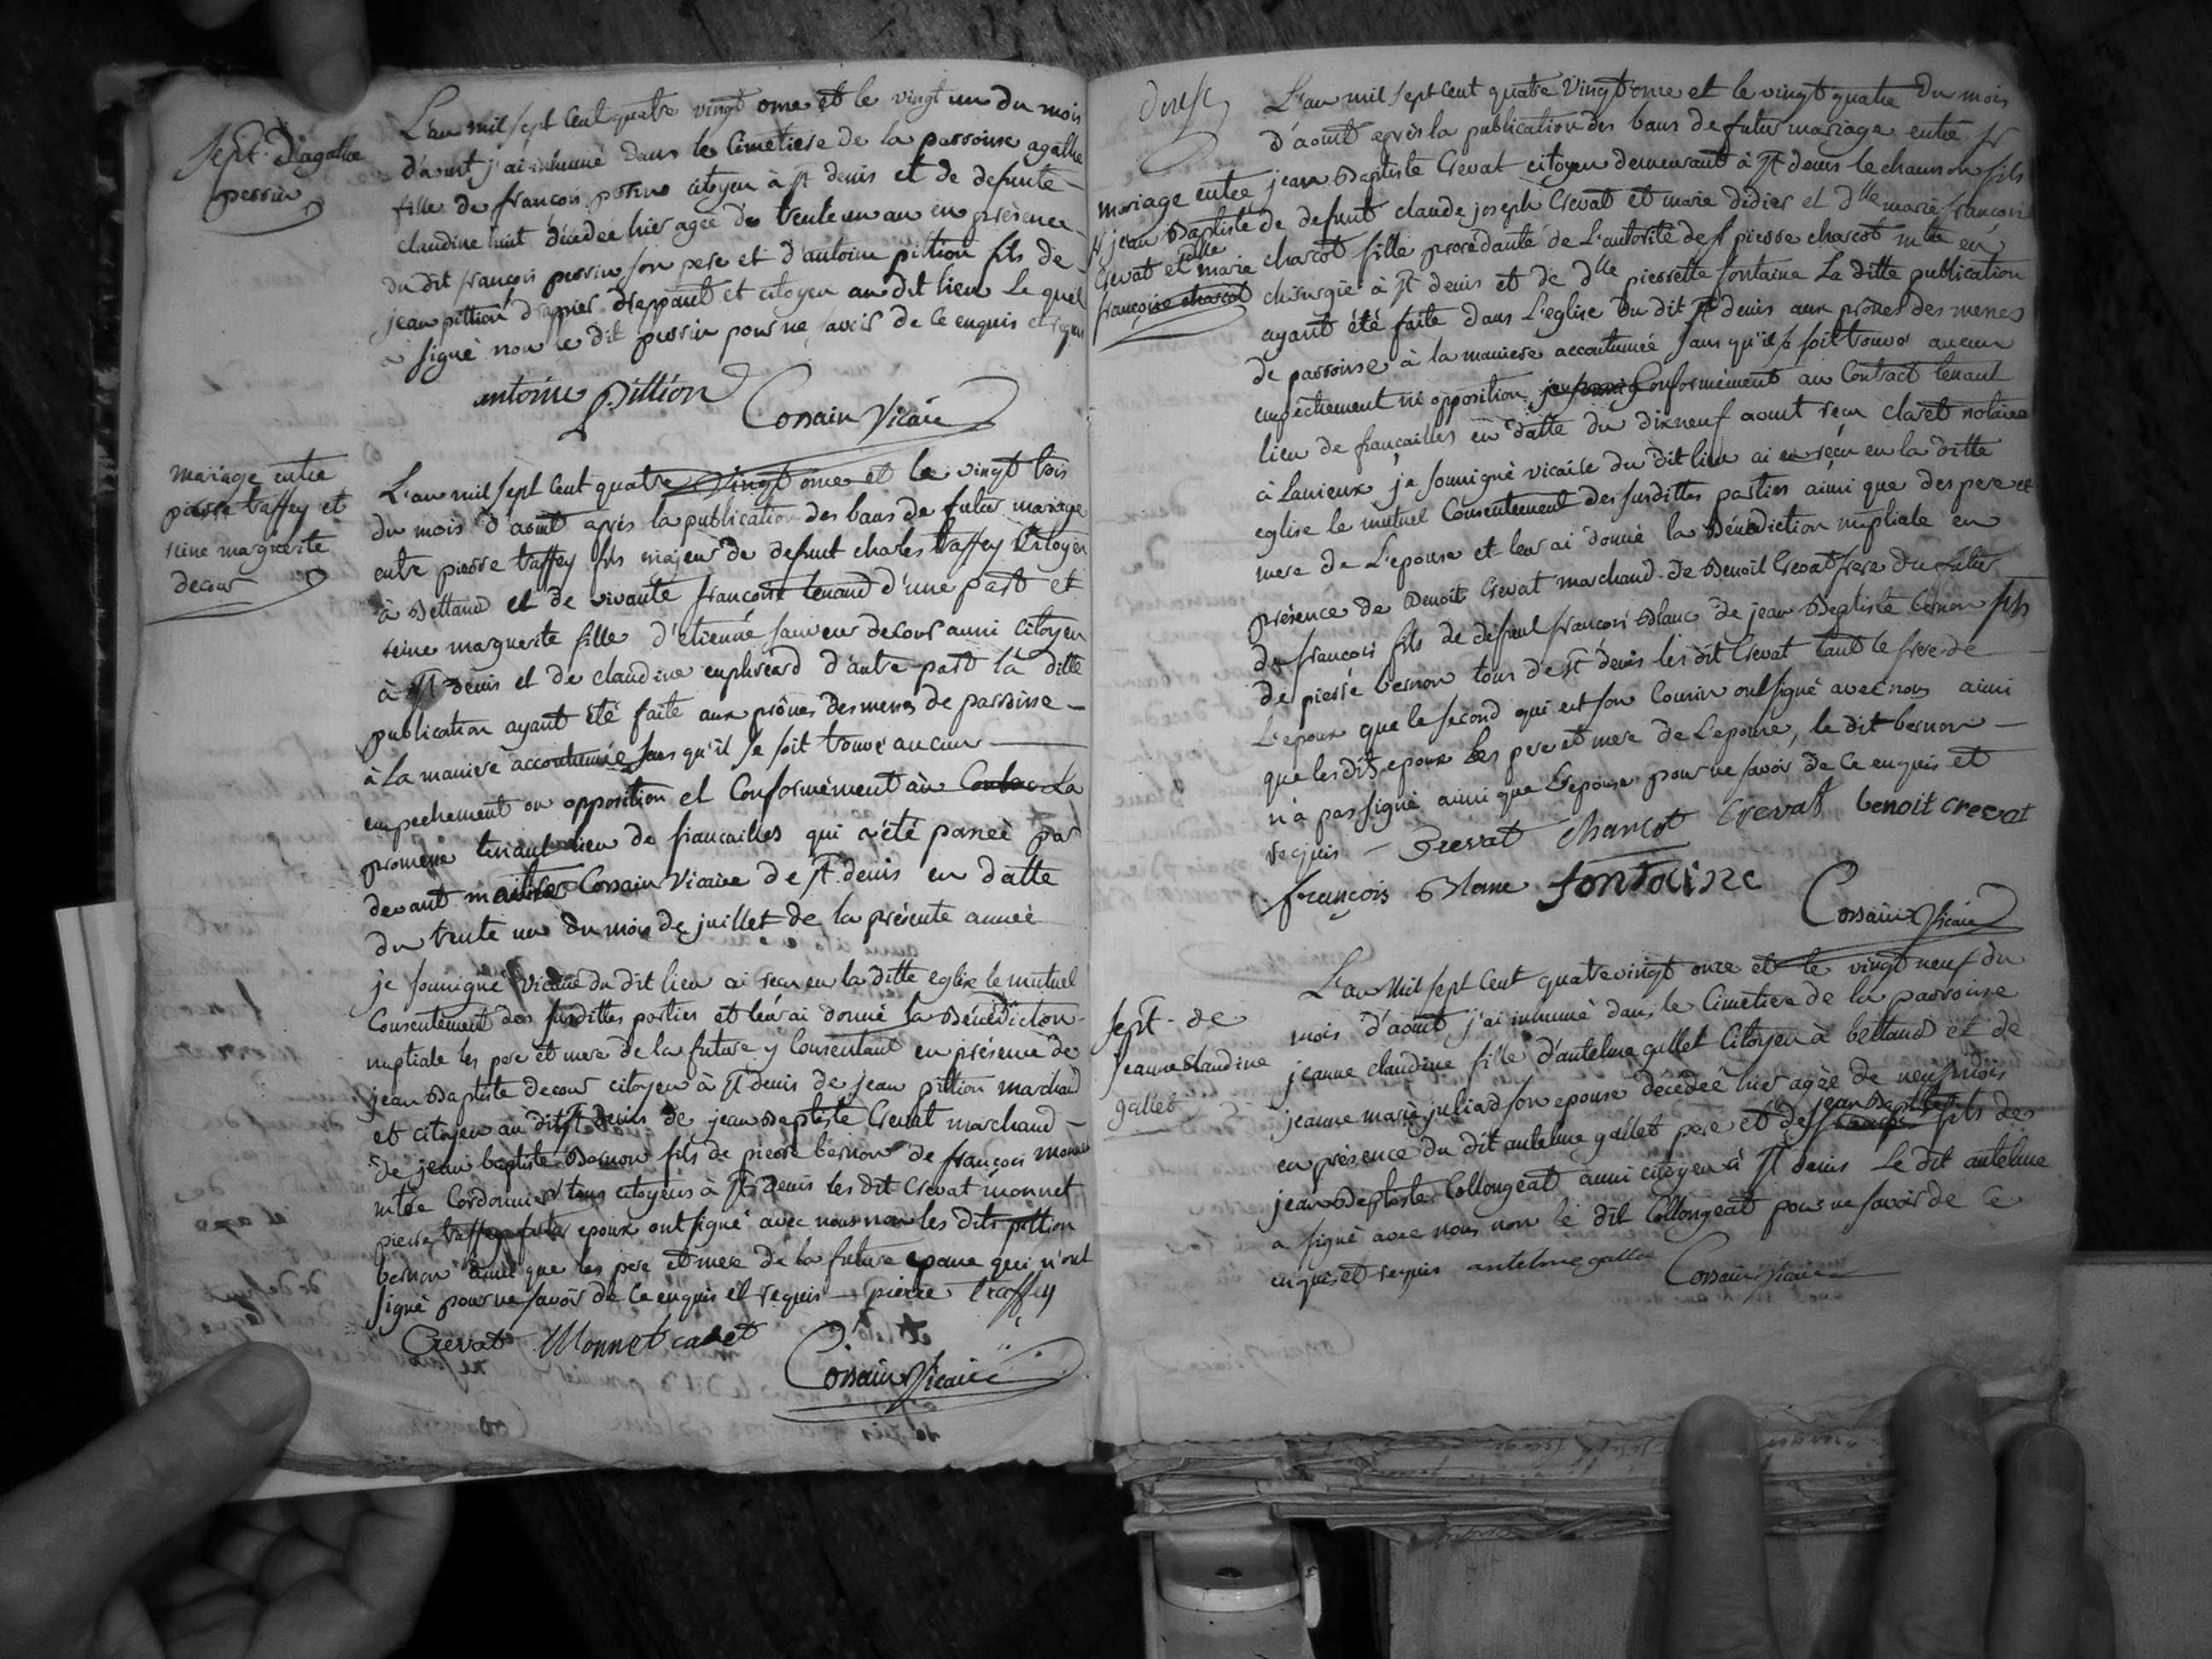 sept. d'agathe
perrin
L'an mil sept cent quatre vingt onze et le vingt un du mois
d'aout j'ai inhumé dans le cimetiere de la parroisse agathe
fille de françois perrin citoyen à st denis et de defunte
claudine huit décédée hier agée de trente un an en présence
du dit françois perrin son pere et d'antoine pittion fils de
jean pittion drappier drappant et citoyen au dit lieu le quel
a signé non le dit perrin pour ne savoir de ce enquis et requis
antoine Pittion
Cossain Vicaire
mariage entre
pierre traffey et
reine marguerite
decour
L'an mil sept cent quatre vingt onze et le vingt trois
du mois d'aout après la publication des bans de futur mariage
entre pierre traffey fils majeur de defunt charles traffey citoyen
à Bettand et de vivante françoise tenand d'une part et
reine marguerite fille d'etienne sauveur decour aussi citoyen
à st denis et de claudine d'autre part la ditte
publication ayant été faite aux prônes des messes de parroisse
à la maniere accoutumée sans qu'il se soit trouvé aucun
empechement ou opposition et conformément à la
promesse tenant lieu de fiancailles qui a été passée par
devant Cossain Vicaire de st denis en datte
du trente un du mois de juillet de la présente année
je soussigné vicaire du dit lieu ai reçu en la ditte eglise le mutuel
consentement des susdittes parties et leur ai donné la Bénédiction
nuptiale les pere et mere de la future y consentant en présence de
jean Baptiste decour citoyen à st denis de jean pittion marchand
et citoyen au dit st denis de jean Baptiste Crevat marchand
de jean baptiste Bernon fils de pierre bernon de françois monnet
mtre cordonnier tous citoyens à st denis les dit Crevat monnet
pierre traffey futur epoux ont signé avec nous non les dits pittion
bernon ainsi que les pere et mere de la future epouse qui n'ont
signé pour ne savoir de ce enquis et requis pierre traffey
Crevat Monnet cadet
Cossain Vicaire
mariage entre
sr jean Baptiste
Crevat et dlle marie
françoise charcot
L'an mil sept cent quatre vingt onze et le vingt quatre du mois
d'aout après la publication des bans de futur mariage entre sr
jean Baptiste Crevat citoyen demeurant à st denis le chausson fils
de defunt claude joseph Crevat et marie didier et dlle marie françoise
charcot fille procédante de l'autorité de sr pierre charcot mtre en
chirurgie à st denis et de dlle pierrette fontaine la ditte publication
ayant été faite dans l'eglise du dit st denis aux prônes des messes
de parroisse à la maniere accoutumée sans qu'il se soit trouvé aucun
empêchement ni opposition conformément au contract tenant
lieu de fiancailles en datte du dixneuf aout reçu claret notaire
à Lanieux je soussigné vicaire du dit lieu ai reçu en la ditte
eglise le mutuel consentement des susdittes parties ainsi que des pere et
mere de l'epouse et leur ai donné la Bénédiction nuptiale en
présence de Benoit Crevat marchand de Benoit Crevat frere du futur
de françois fils de défunt françois Blanc de jean Baptiste bernon fils
de pierre bernon tous de st denis les dit Crevat tant le frere de
l'epoux que le second qui est son cousin ont signé avec nous ainsi
que les dits epoux les pere et mere de l'epouse, le dit bernon
n'a pas signé ainsi que l'epouse pour ne savoir de ce enquis et
requis Crevat Charcot Crevat benoit crevat
françois Blanc fontaine
Cossain Vicaire
sept. de
jeanne claudine
gallet
L'an mil sept cent quatre vingt onze et le vingt neuf du
mois d'aout j'ai inhumé dans le cimetiere de la parroisse
jeanne claudine fille d'antelme gallet citoyen à bettand et de
jeanne marie juliard son epouse décédée hier agée de neuf mois
en présence du dit antelme gallet pere et de jean Baptiste fils de
jean Baptiste Collongeat aussi citoyen à st denis le dit antelme
a signé avec nous non le dit Collongeat pour ne savoir de ce
enquis et requis antelme gallet Cossain Vicaire